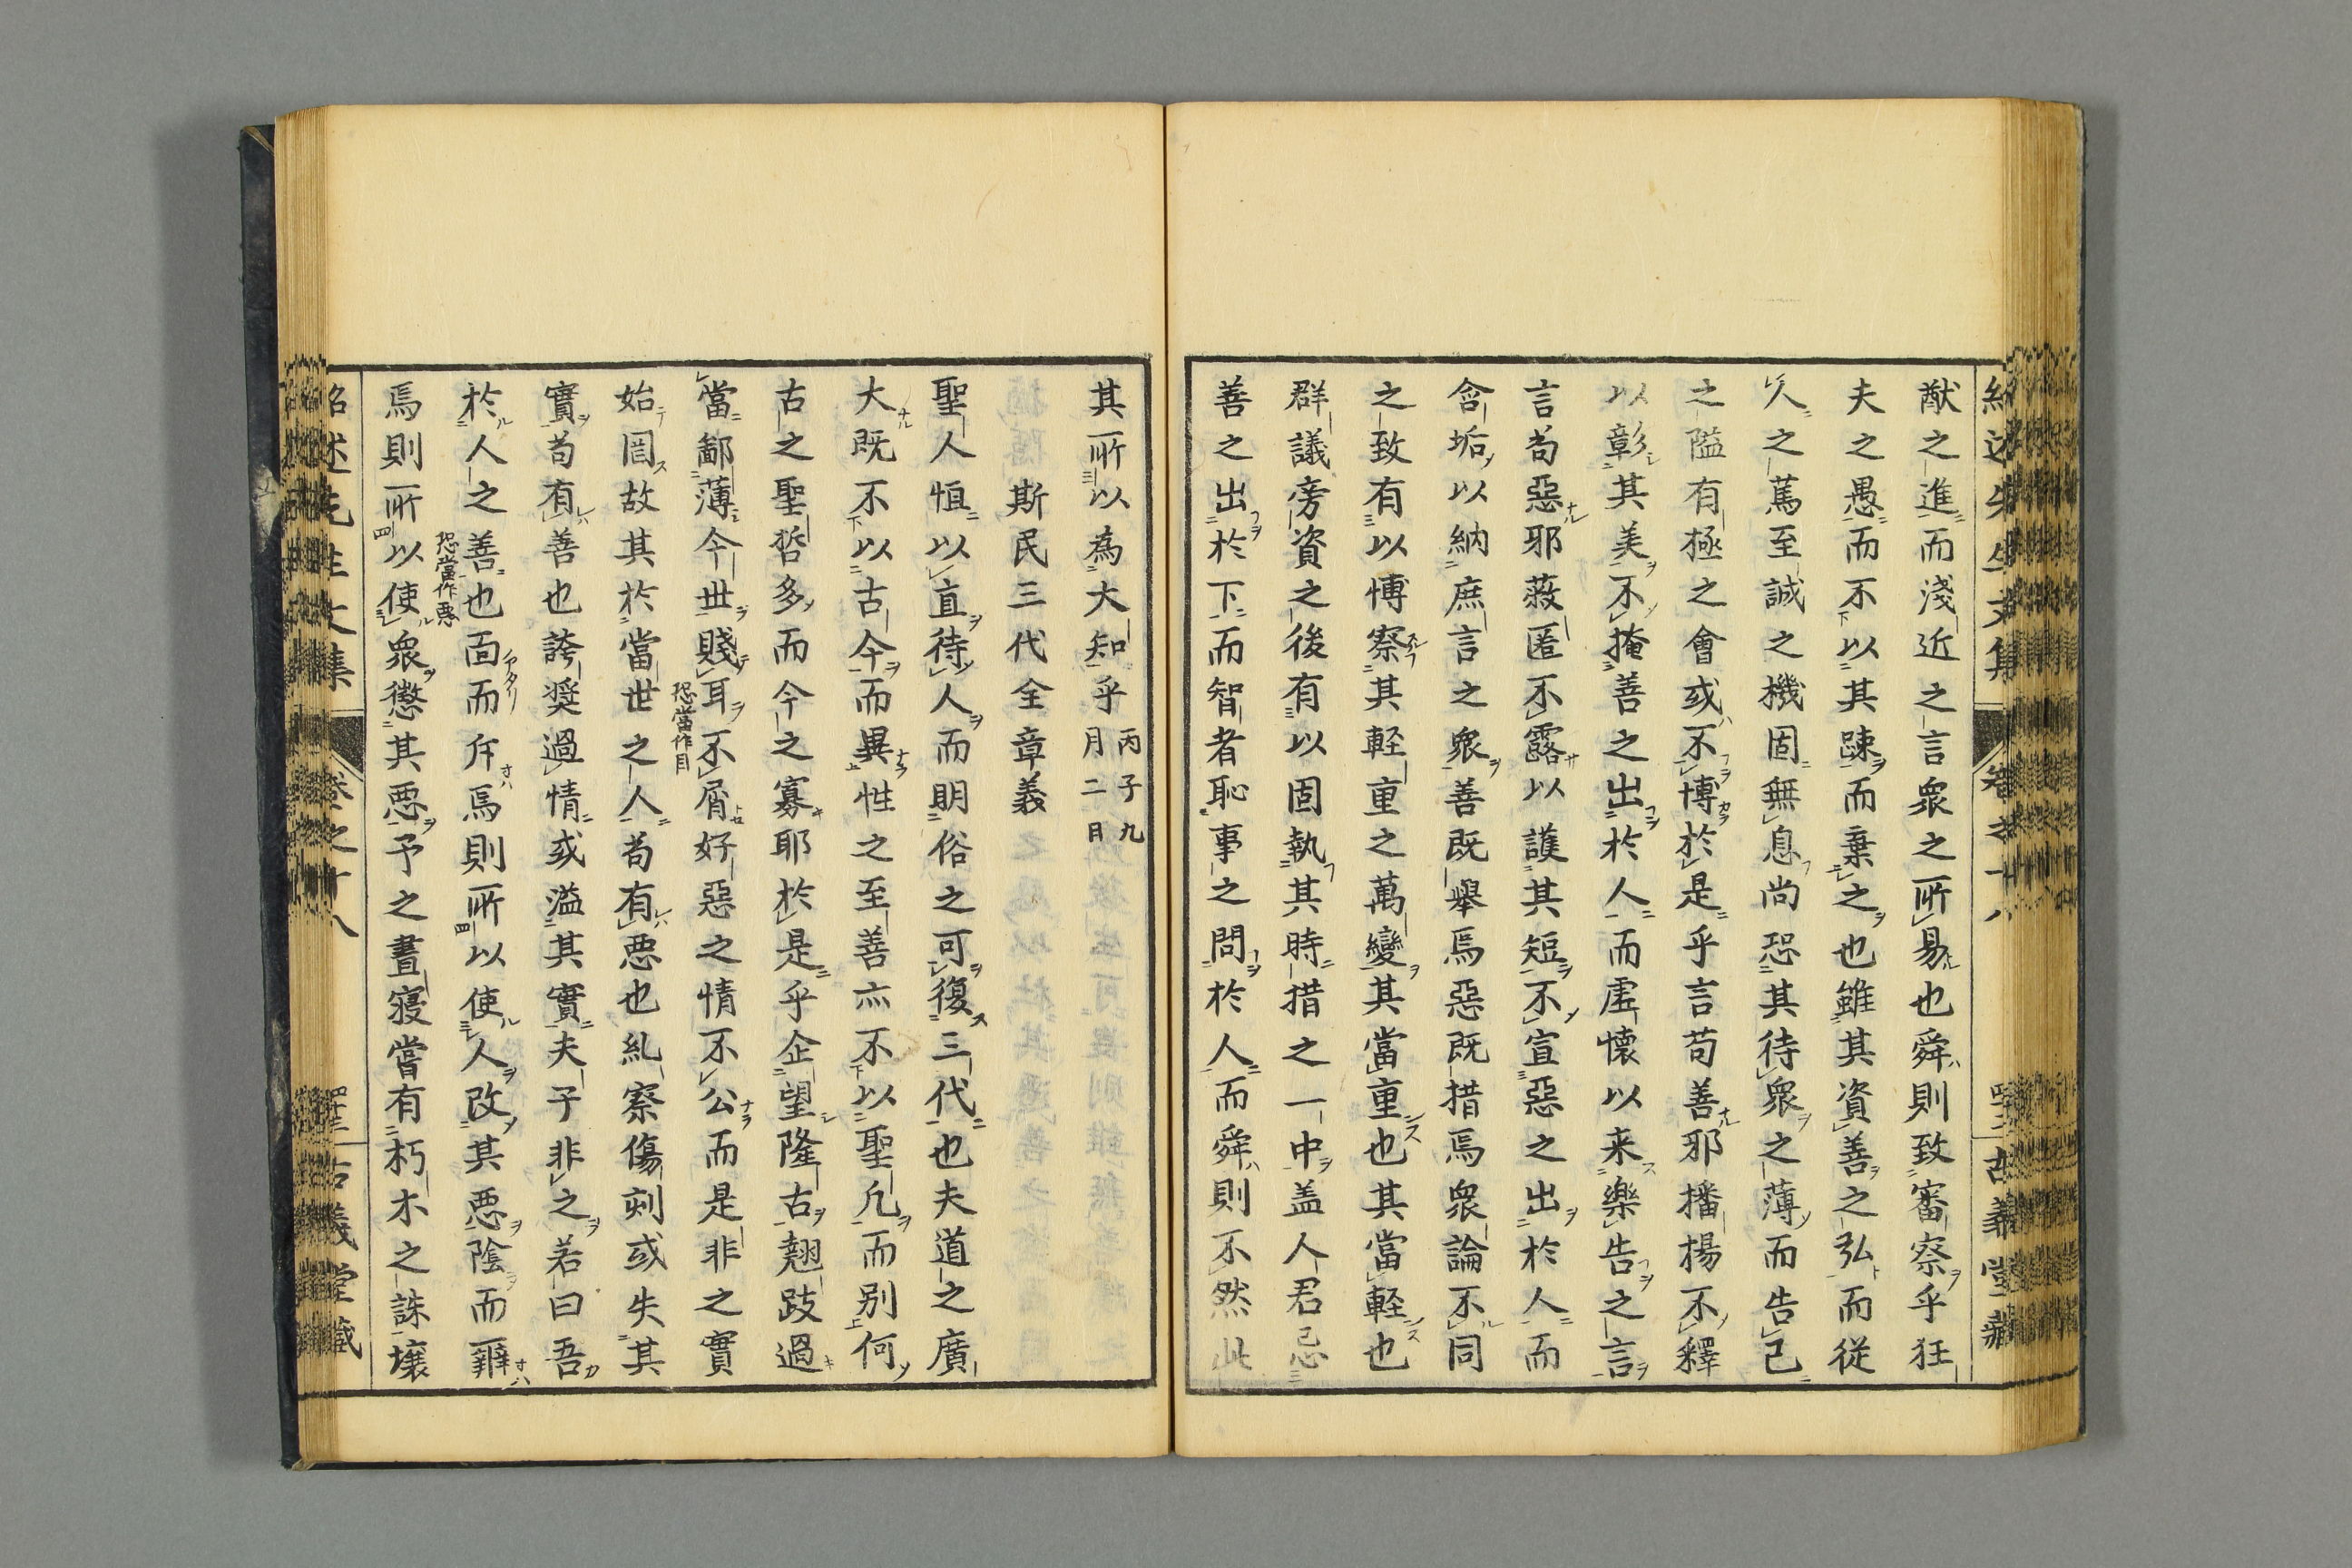 猷之進而淺近之言衆之所易也舜則致審察乎狂
夫之愚而不以其踈而棄之也雖其資善之弘而從
人之蔿至誠之機固無息尚恐其待衆之薄而告己
之隘有極之會或不博於是乎言苟善邪播楊不釋
以彰其美不掩善之出於人而虛懷以来樂告之言
言苟惡邪蔽匿不露以護其短不宣惡之出於人而
含垢以納庶言之衆善既舉焉惡既措焉衆論不同
之致有以博察其軽重之萬變其當重也其當軽也
群議旁資之後有以固執其時措之一中盖人君忌
善之出於下而智者恥事之問於人而舜則不然此
其所以為大知乎丙子九月二日
斯民三代全章義
聖人恒以直待人而明俗之可復三代也夫道之廣
大既不以古今而異性之至善亦不以聖凡而别何
古之聖哲多而今之寡耶於是乎企望隆古翹跂過
當鄙薄今世賤耳不屑好惡之情不公而是非之實
恐當作目
始罔故其於當世之人苟有惡也糺察傷刻或失其
實苟有善也誇奨過情或溢其實夫子非之若曰吾
於人之善也面而斥焉則所以使人改其惡陰而辤
恐當作惡
焉則所以使衆懲其惡予之晝寝嘗有朽木之誅壤